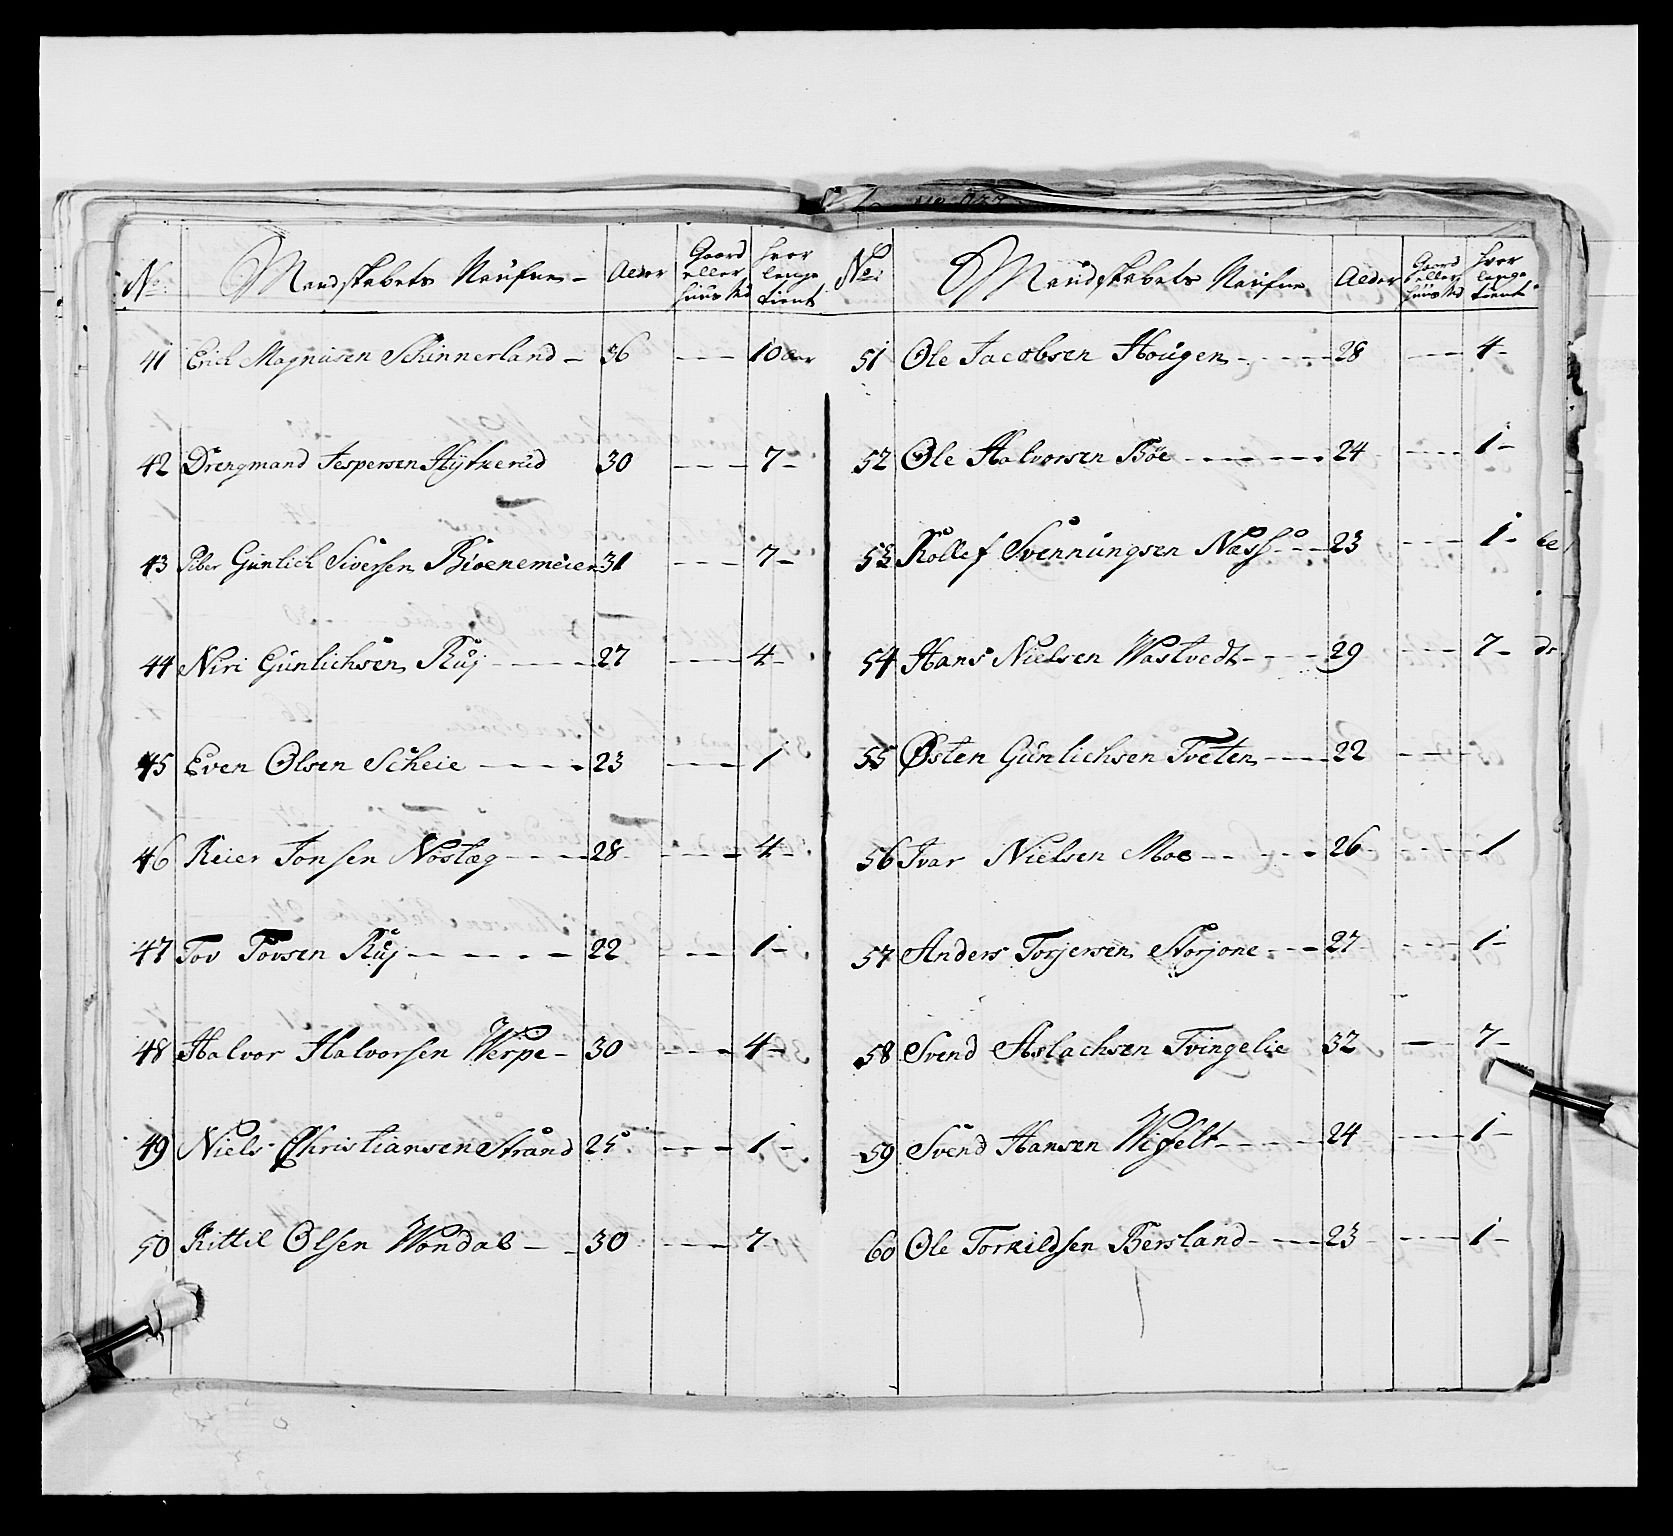 No Mandskabets Naufne Alder Gaard eller huusted hvor lenge tient
41 Erich Magnusen Schinnerland 36 10 aar
42 Drengmand Jespersen 30 7
43 Piber Gunlich Siversen 31 7
44 Niri Gunlichsen Ruj 27 4
45 Even Olsen Scheie 23 1
46 Reier Jonsen Nostæg 28 4
47 Tov Tovsen Ruj 22 1
48 Halvor Halvorsen Werpe 30 4
49 Niels Christiansen Strand 25 1
50 Kittil Olsen Wondal 30 7
No Mandskabets Naufne Alder Gaard eller huusted hvor lenge tient
51 Ole Jacobsen Hougen 28 4
52 Ole Halvorsen Bøe 24 1
53 Rollef Svennungsen Næss 23 1
54 Hans Nielsen Wastvedt 29 7
55 Østen Gunlichsen Tveten 22
56 Ivar Nielsen Moe 26 1
57 Anders Torjersen Storjone 27 1
58 Svend Aslachsen Tvingelie 32 7
59 Svend Hansen Wifelt 24 1
60 Ole Torkildsen Bersland 23 1